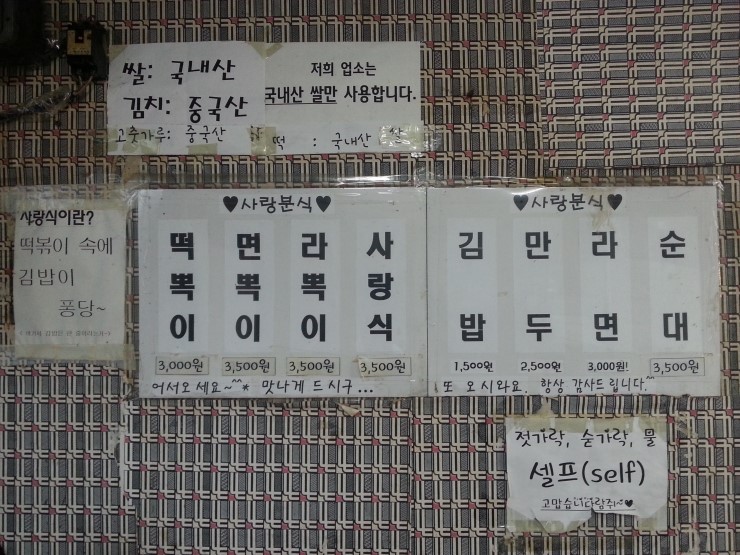 쌀: 국내산
김치: 중국산
고춧가루: 중국산
저희 업소는
국내산 쌀만 사용합니다.
떡 : 국내산 쌀
사랑식이란?
떡볶이 속에
김밥이
퐁당~
♥사랑분식♥
떡뽁이 3,000원
면뽁이 3,500원
라뽁이 3,500원
사랑식 3,500원
어서오세요~^^* 맛나게 드시구...
♥사랑분식♥
김밥 1,500원
만두 2,500원
라면 3,000원!
순대 3,500원
또 오시와요. 항상 감사드립니다.^^
젓가락, 숟가락, 물
셀프(self)